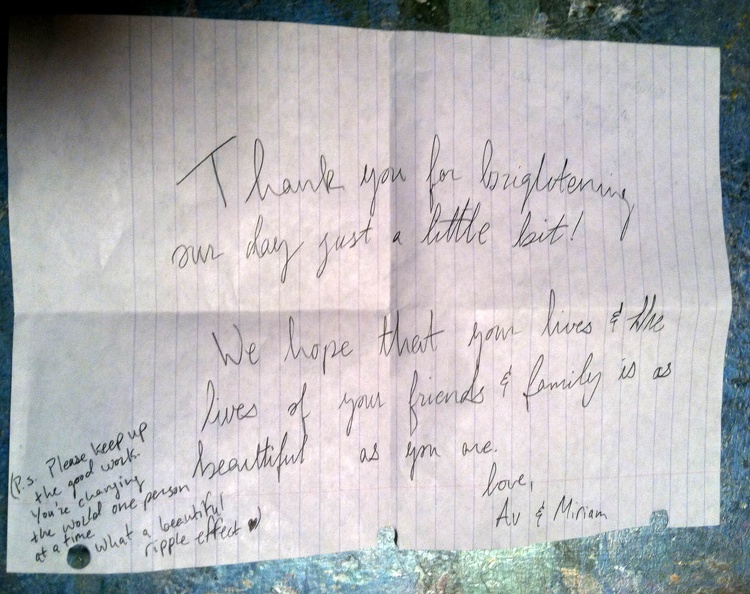 Thank you for brightening
our day just a little bit!
We hope that your lives & the
lives of your friends & family is as
beautiful as you are.
love,
Av & Miriam
(P.s. Please keep up
the good work.
You're changing
the world one person
at a time.
What a beautiful
ripple effect ♥)